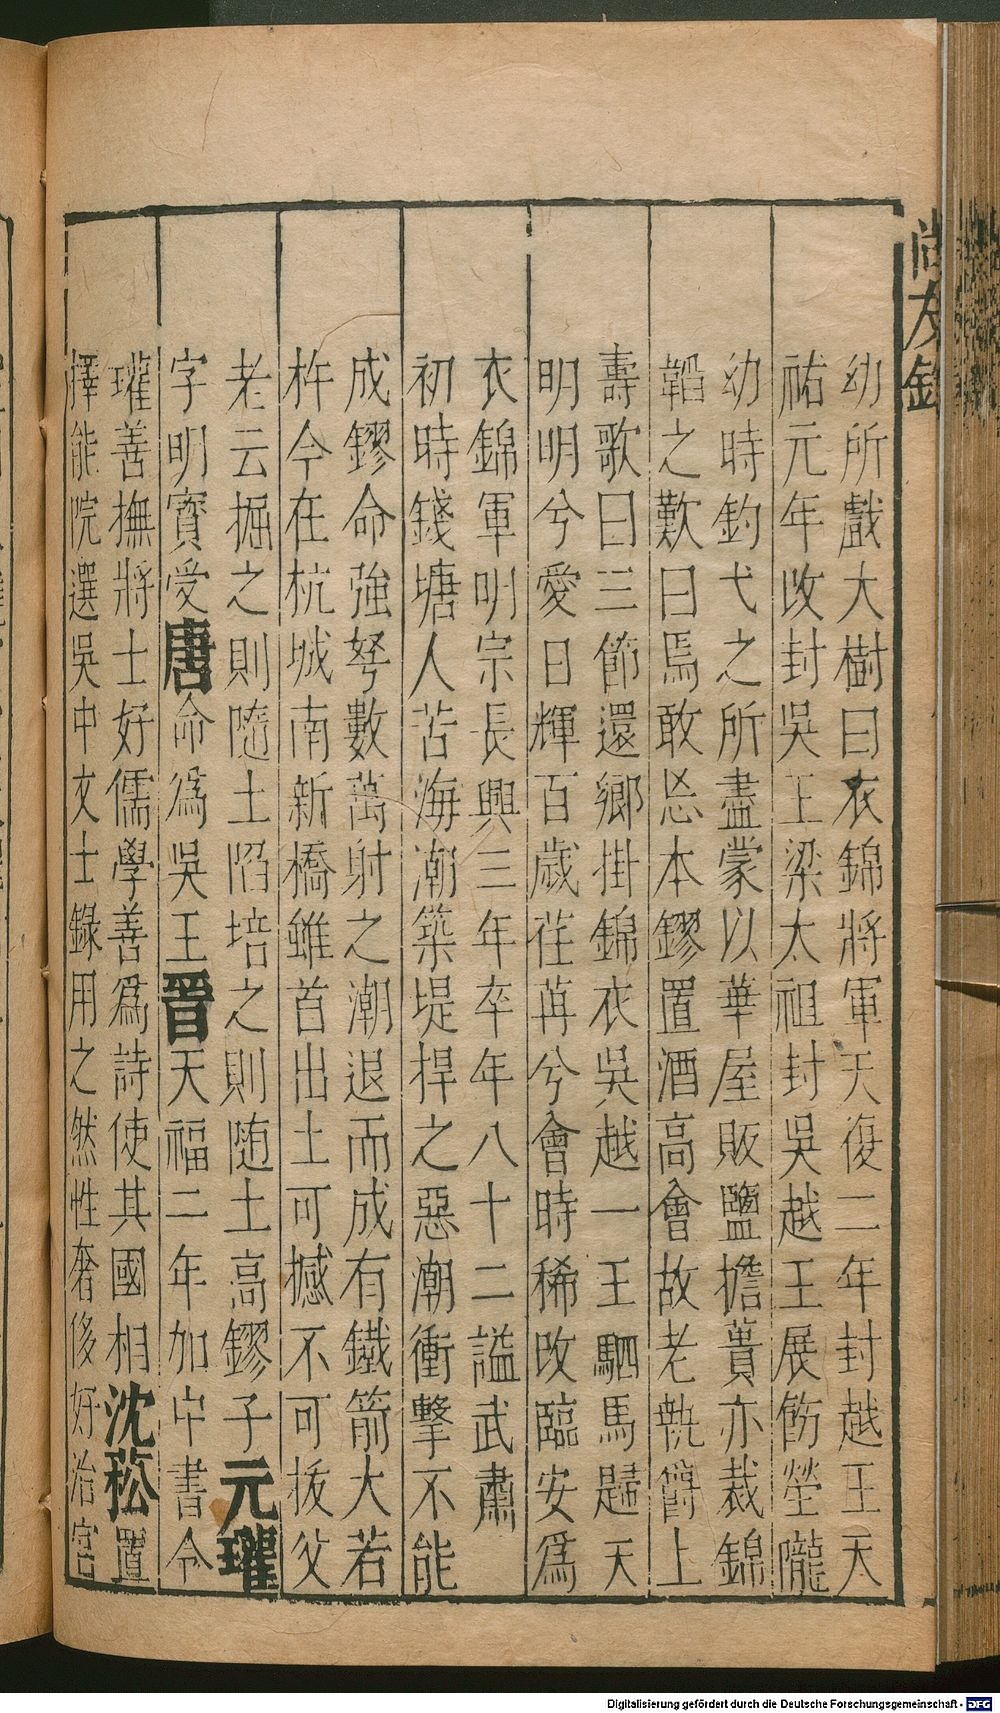 尚友錄
幼所戲大樹曰衣錦將軍天復二年封越王天
祐元年改封吳王梁太祖封吳越王展飭塋隴
幼時釣弋之所盡蒙以華屋販鹽擔蕢亦裁錦
韜之歎曰焉敢忘本鏐置酒高會故老執爵上
壽歌曰三節還鄉掛錦衣吳越一王駟馬歸天
明明兮愛日輝百歲荏苒兮會時稀改臨安為
衣錦軍明宗長興三年卒年八十二謚武肅
初時錢塘人苦海潮築堤捍之惡潮衝擊不能
成鏐命強弩數萬射之潮退而成有鐵箭大若
杵今在杭城南新橋雖首出土可撼不可拔父
老云掘之則隨土陷培之則随土高鏐子元瓘
字明寳受唐命為吳王晉天福二年加中書令
瓘善撫將士好儒學善為詩使其國相沈崧置
擇能院選吳中文士錄用之然性奢侈好治宮
Digitalisierung gefördert durch die Deutsche Forschungsgemeinschaft - DFG